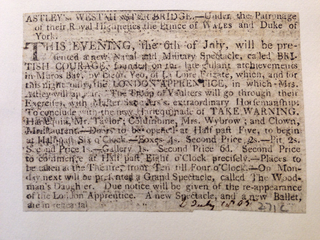 ASTLEY's WESTMINSTER BRIDGE.—Under the Patronage
of their Royal Highnesses the Prince of WALES and Duke of
YORK.
THIS EVENING, the 6th of July, will be pre-
sented a new Naval and Military Spectacle, called BRI-
TISH COURAGE, founded on the gallant atchievements
in Muros Bay, by Yeo, of La Loire Frigate, which, and for
this night only, the LONDON APPRENTICE, in which Mrs.
Astley will appear. The Troop of Valters will go through their
Exercises, with Master Astley's extraordinary Horsemanship.
To conclude with the new Harlequinade of TAKE WARNING.
Harlequin, Mr. Taylor; Columbine, Mrs. Wybrow; and Clown,
Mr. Laurent. Doors to be opened at Half past Five, to begin
at Half past Six o'Clock.—Boxes 4s. Second Price 2s.—Pit 2s.
Second Price 1s.—Gallery 1s. Second Price 6d. Second Price
to commence at Half past Eight o'Clock precisely.—Places to
be taken at the Theatre, from Ten till Four o'Clock.—On Mon-
day next will be presented a Grand Spectacle, called The Wood-
man's Daughter. Due notice will be given of the re-appearance
of the London Apprentice. A new Spectacle, and a new Ballet,
are in rehearsal
6 July 1805